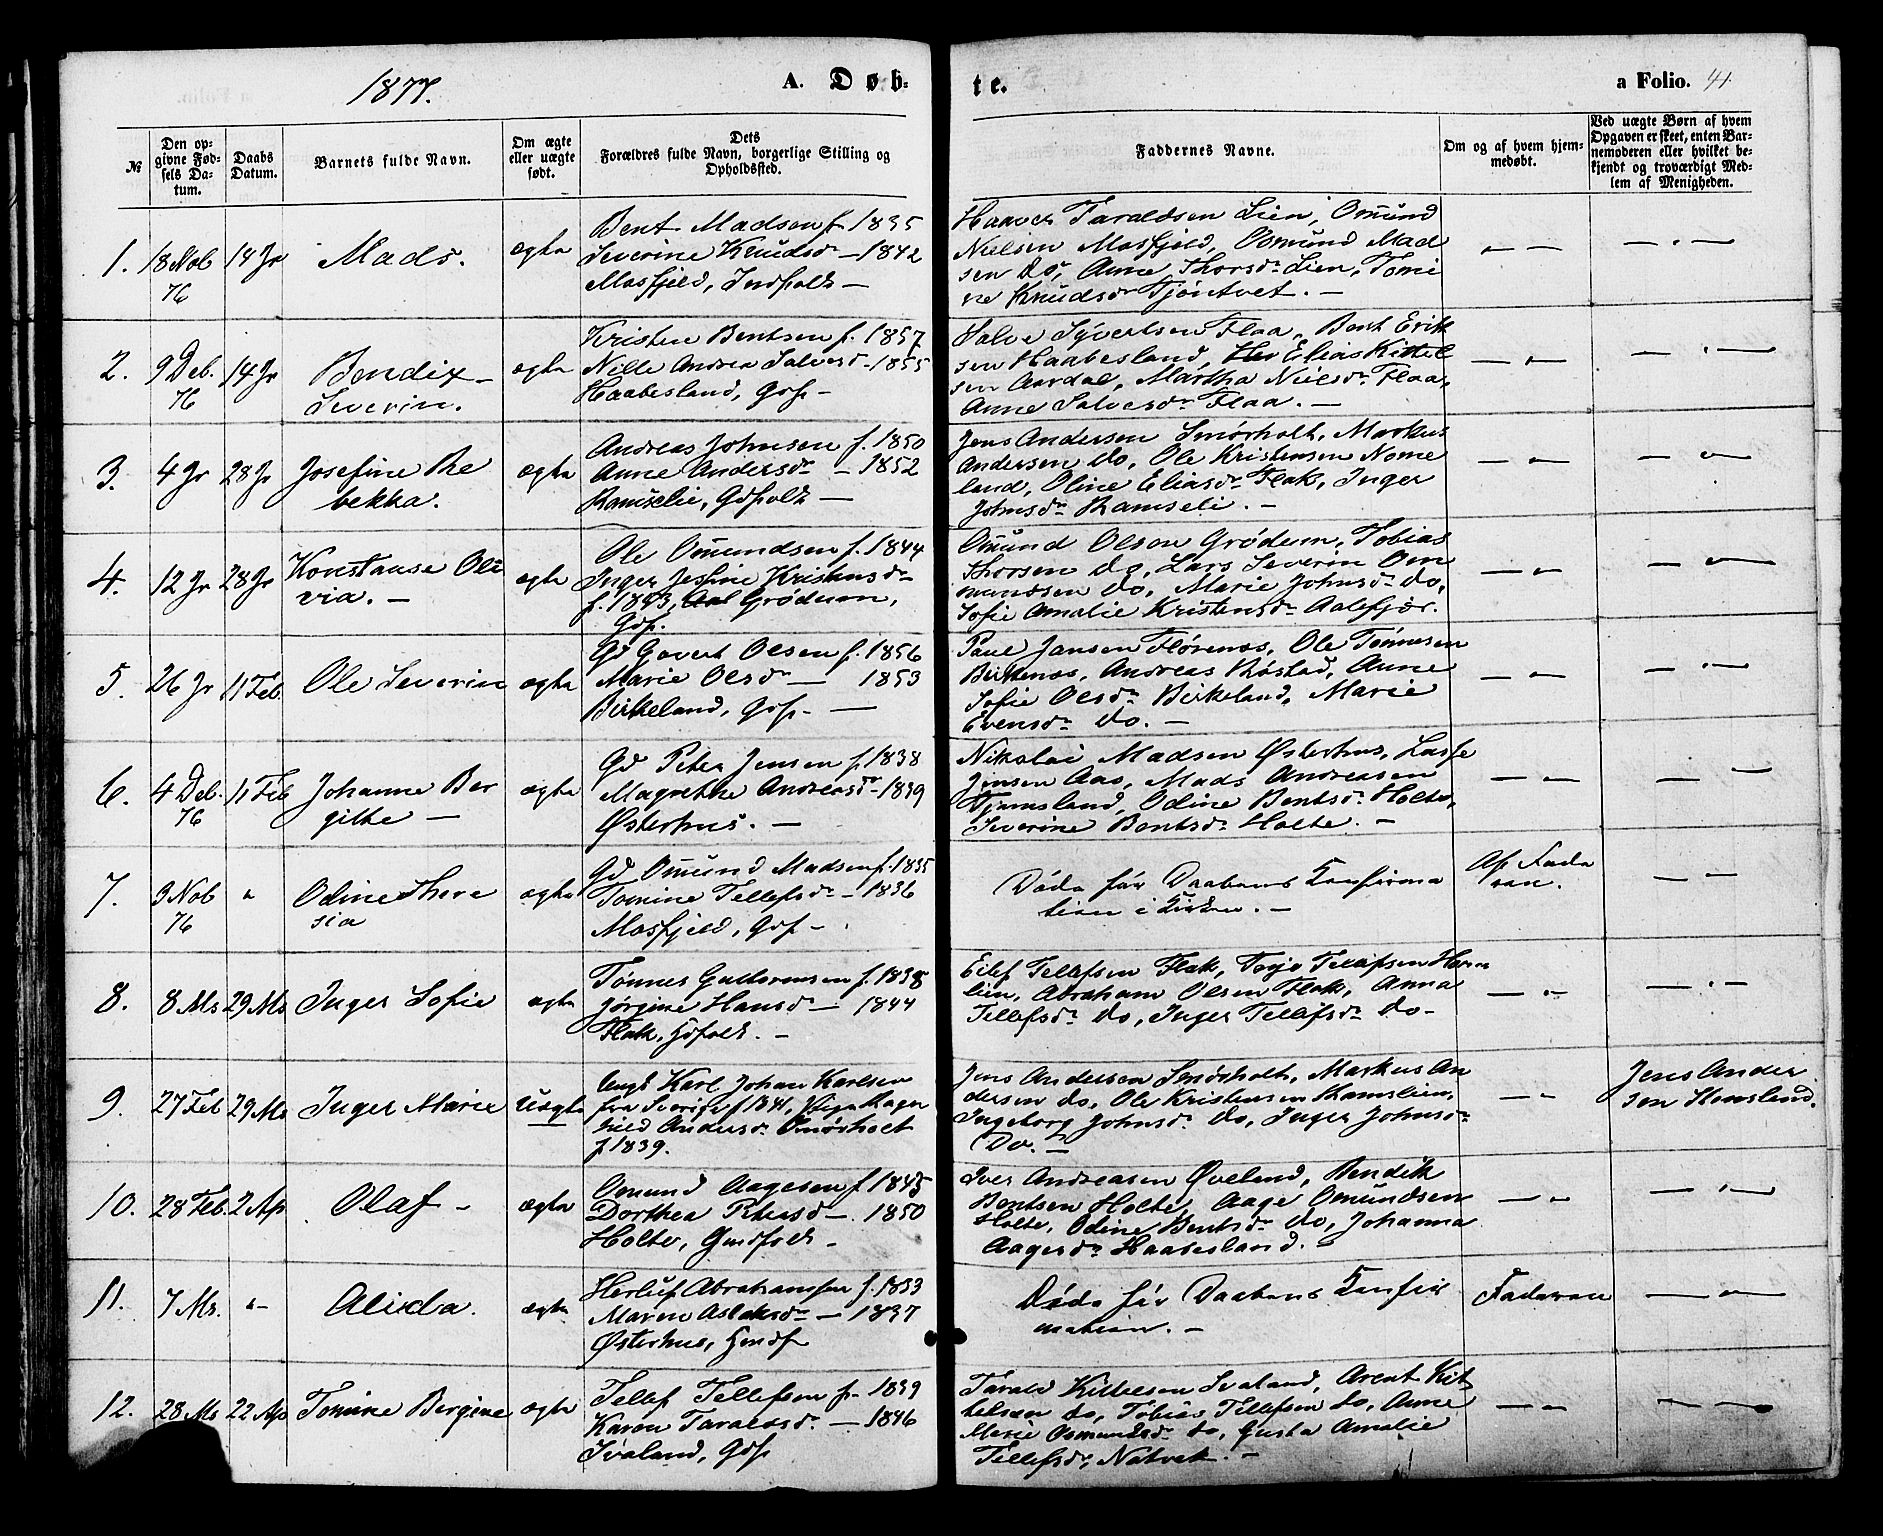 1877.
A. Døb-
te.
a Folio. 41
№
Den op-
givne Fød-
sels Da-
tum.
Daabs
Datum.
Barnets fulde Navn.
Om ægte
eller uægte
født.
Dets
Forældres fulde Navn, borgerlige Stilling og
Opholdssted.
Faddernes Navne.
Om og af hvem hjem-
medøbt.
Ved uægte Børn af hvem
Opgaven er skeet, enten Bar-
nemoderen eller hvilket be-
kjendt og troværdigt Med-
lem af Menigheden.
1.
18 Nob
76
14 Jr
Mads.
ægte
Bent Madsen f. 1835
Severine Knudsd - 1842
Mosfjeld, Indfolk -
Haaver Taraldsen Lien, Omund
Nielsen Mosfjeld, Osmund Mad
sen do, Anne Thorsd. Lien, Tomi
ne Knudsd Tjøntvet. -
2.
9 Deb.
76
14 Jr
Bendix
Severin.
ægte
Kristen Bentsen f. 1857
Nille Andrea Salvesd - 1855
Haabesland, Gdf -
Salve Syvertsen Flaa, Bent Erik
sen Haabesland, Elias Kittel
sen Aardal, Martha Nielsd. Flaa,
Anne Salvesd. Flaa. -
3.
4 Jr
28 Jr
Josefine Re
bekka.
ægte
Andreas Johnsen f. 1850
Anne Andersd. - 1852
Ramselie, Gdfolk -
Jens Andersen Smørholt, Markus
Andersen do, Ole Kristensen Nome
land, Oline Eliasd. Flak, Inger
Johnsd. Ramseli. -
4.
12 Jr
28 Jr
Konstanse Oli
via. -
ægte
Ole Omundsen f. 1844
Inger Jesfine Kristensd.
f. 1843, Grødum,
Gdf.
Omund Olsen Grødum, Tobias
Thorsen do, Lars Severin Om
mundsen do, Marie Johnsd. do,
Sofie Amalie Kristensd. Aalefjær.
5.
26 Jr
11 Feb.
Ole Severin
ægte
Gd Govert Olsen f. 1856
Marie Olsd. - 1853
Birkeland, Gdf. -
Paul Jansen Flørenes, Ole Tønnesen
Birkenes, Andreas Røstad, Anne
Sofie Olsd. Birkeland, Marie
Evensd. do. -
6.
4 Deb.
76
11 Feb
Johanne Ber
gitte -
ægte
Gd Peter Jensen f. 1838
Magrethe Andreasd. - 1839
Østerhus. -
Nikolai Madsen Østerhus, Lasse
Jensen Aas, Mads Andreasen
Tjomsland, Odine Bentsd. Holte,
Severine Bentsd. Holte. -
7.
3 Nob
76
"
Odine There
sia
ægte
Gd Omund Madsen f. 1835
Tomine Tellefsd. - 1836
Mosfjeld, Gdf -
Døde før Daabens Konfirma
tion i Kirken. -
Af Fade
ren.
8.
8 Ms
29 Ms
Inger Sofie
ægte
Tønnes Guttormsen f. 1838
Jørgine Hansd. - 1844
Flak, Gdfolk. -
Eilef Tellefsen Flak, Terje Tellefsen
lien, Abraham Olsen Flak, Anna
Tellefsd. do, Inger Tellefsd. do -
9.
27 Feb
29 Ms
Inger Marie
Uægte
Ungk Karl Johan Karlsen
fra Sverige f 1841, Pige Ragn
hild Andersd. Smørholt
f 1839.
Jens Andersen Smørholt, Markus An
dersen do, Ole Kristensen Ramslien,
Ingeborg Johnsd. do, Inger Johnsd.
Do. -
Jens Ander
sen
10.
28 Feb.
2 Ap
Olaf -
ægte
Omund Aagesen f. 1845
Dorthea Petersd - 1850
Holte, Gmdfolk -
Iver Andreasen Øveland, Bendik
Bentsen Holte, Aage Omundsen
Holte, Odine Bentsd. do, Johanna
Aagesd. Haabesland.
11.
7 Ms.
"-
Alida.
ægte
Herluf Abrahamsen f. 1833
Maren Aslaksd. - 1837
Østerhus, Gmdf
Døde før Daabens Konfir
mation. -
Faderen
12.
28 Ms
22 Ap
Tomine Bergine
ægte
Tellef Tellefsen f. 1839
Karen Taraldsd. - 1846
Svaland, Gdf
Tarald Kittelsen Svaland, Arent Kit
telsen do, Tobias Tellefsen do, Anne
Marie Osmundsd. do, Gusta Amalie
Tellefsd. Natvek. -